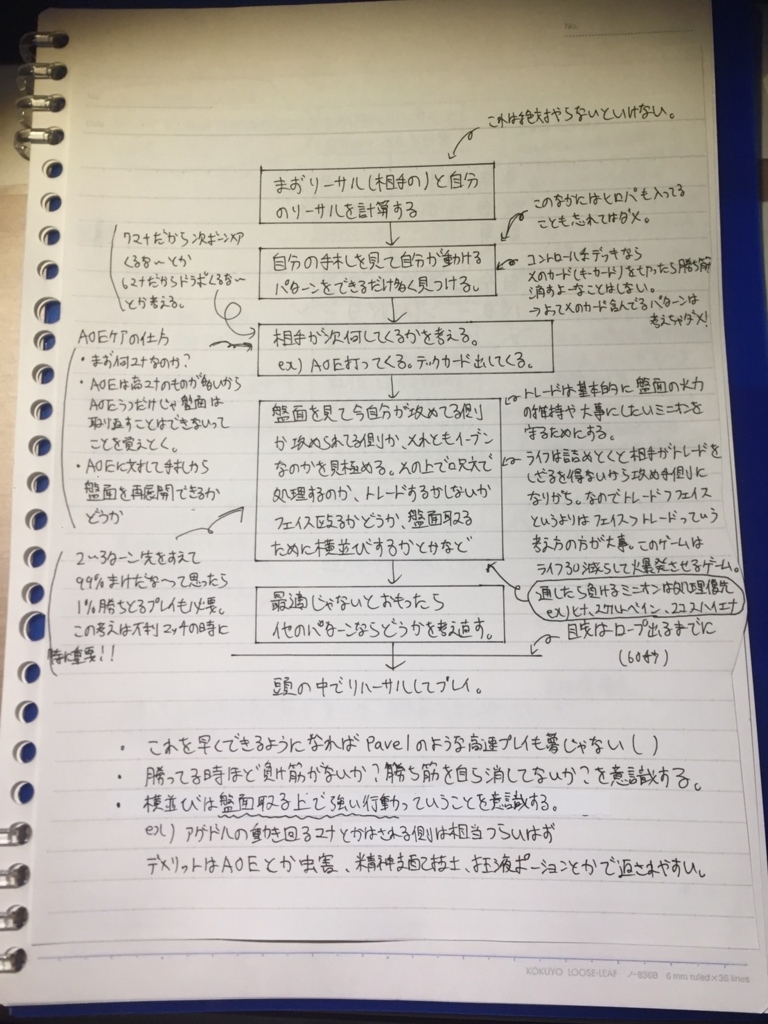 No.
これは絶対やらないといけない。
まずリーサル(相手の)と自分
のリーサルを計算する
このなかにはヒロパも入ってる
ことも忘れてはダメ。
自分の手札を見て自分が動ける
パターンをできるだけ多く見つける。
コントロール系デッキなら
〆のカード(キーカード)を切ったら勝ち筋
消すよーなことはしない。
→よって〆のカード含んでるパターンは
考えちゃダメ!
7マナだから次ボーンメア
くるな~とか
6マナだからドラボくるな~
とか考える。
相手が次何してくるかを考える。
ex) AOE打ってくる。テックカード出してくる。
AOEケアの仕方
・まず何マナなのか?
・AOEは高マナのものが多いから
AOEうつだけじゃ盤面は
取り返すことはできないって
ことを覚えとく。
・AOEに流れて手札から
盤面を再展開できるか
どうか
盤面を見て今自分が攻めてる側
か攻められてる側か、それともイーブン
なのかを見極める。その上で呪文で
処理するのか、トレードするかしないか
フェイス殴るかどうか、盤面取る
ために横並びするかとかなど
トレードは基本的に盤面の火力
の維持や大事にしたいミニオンを
守るためにする。
ライフは詰めとくと相手がトレードを
しざるを得ないから攻め手側に
なりがち。なのでトレード>フェイス
というよりはフェイス>トレードっていう
考え方の方が大事。このゲームは
ライフ30減らして火暴発させるゲーム。
通したら負けるミニオンは処理優先
ex) ヒナ、スケルトペイン、ココスハイエナ
2~3ターン先をすえて
99%まけだな~って思ったら
1%勝ちとるプレイも必要。
この考えは不利マッチの時に
特に重要!!
最適じゃないとおもったら
他のパターンならどうかを考え直す。
目安はロープ出るまでに
(60秒)
頭の中でリハーサルしてプレイ。
・これを早くできるようになればPavelのような高速プレイも夢じゃない( )
・勝ってる時ほど負け筋がないか?勝ち筋を自ら消してないか?を意識する。
・横並びは盤面取る上で強い行動っていうことを意識する。
ex) アグドルの動き回るマナとかはされる側は相当つらいはず
デメリットはAOEとか虫害、精神支配技士、狂液ポーションとかで返されやすい。
KOKUYO LOOSE-LEAF ノ-836B 6 mm ruled×36 lines